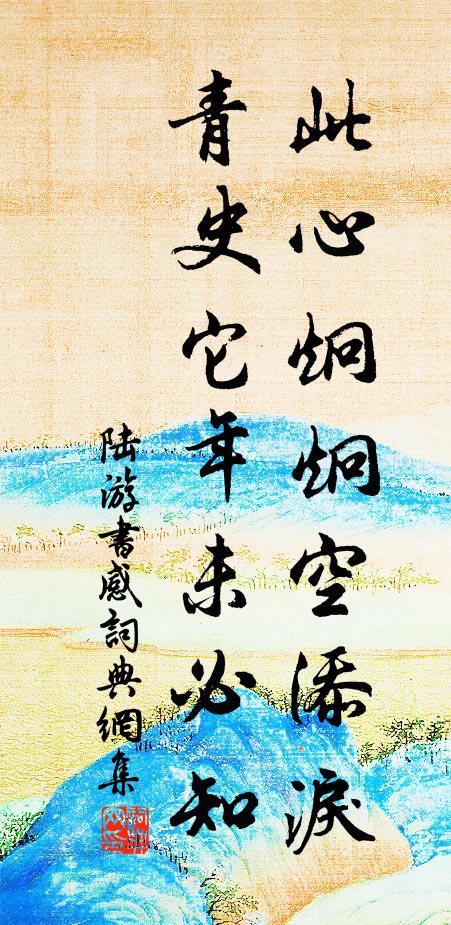 此心炯炯空添淚
青史它年未必知
陆游書感詞典網集